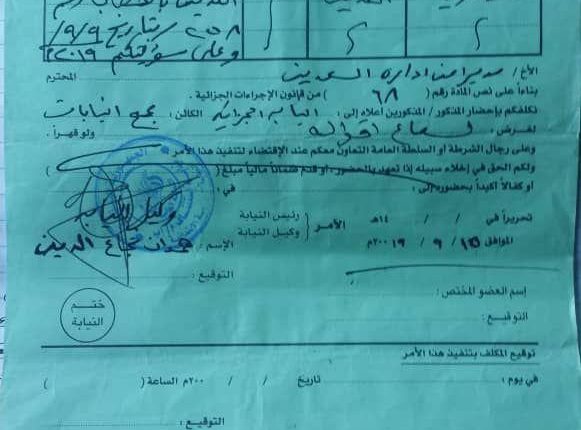 ٢٠٨ بتاريخ ٩/٩/
وعلى ٢٠١٩
الأخ / مدير امن ادارة السعدين المحترم
بناءاً على نص المادة رقم ( ٦٨ ) من قانون الإجراءات الجزائية.
نكلفكم بإحضار المذكور / المذكورين أعلاه إلى: النيابة الجزائية الكائن: بمجمع النيابات
لغرض: لسماع اقواله ولو قهراً.
وعلى رجال الشرطة أو السلطة العامة التعاون معكم عند الإقتضاء لتنفيذ هذا الأمر
ولكم الحق في إخلاء سبيله إذا تعهد بالحضور، أو قدم ضماناً مالياً مبلغ ( )
أو كفالاً أكيداً بحضوره إلى: في:
تحريراً في / / ١٤هـ
الموافق ١٥ / ٩ / ٢٠٠١٩م
الأمر { رئيس النيابة
وكيل النيابة
وكيل النيابة
الإسم: حمدان شجاع الدين
التوقيع:
إسم العضو المختص:
التوقيع:
ختم
النيابة
توقيع المكلف بتنفيذ هذا الأمر
في يوم: تاريخ / / ٢٠٠م الساعة ( )
التوقيع: